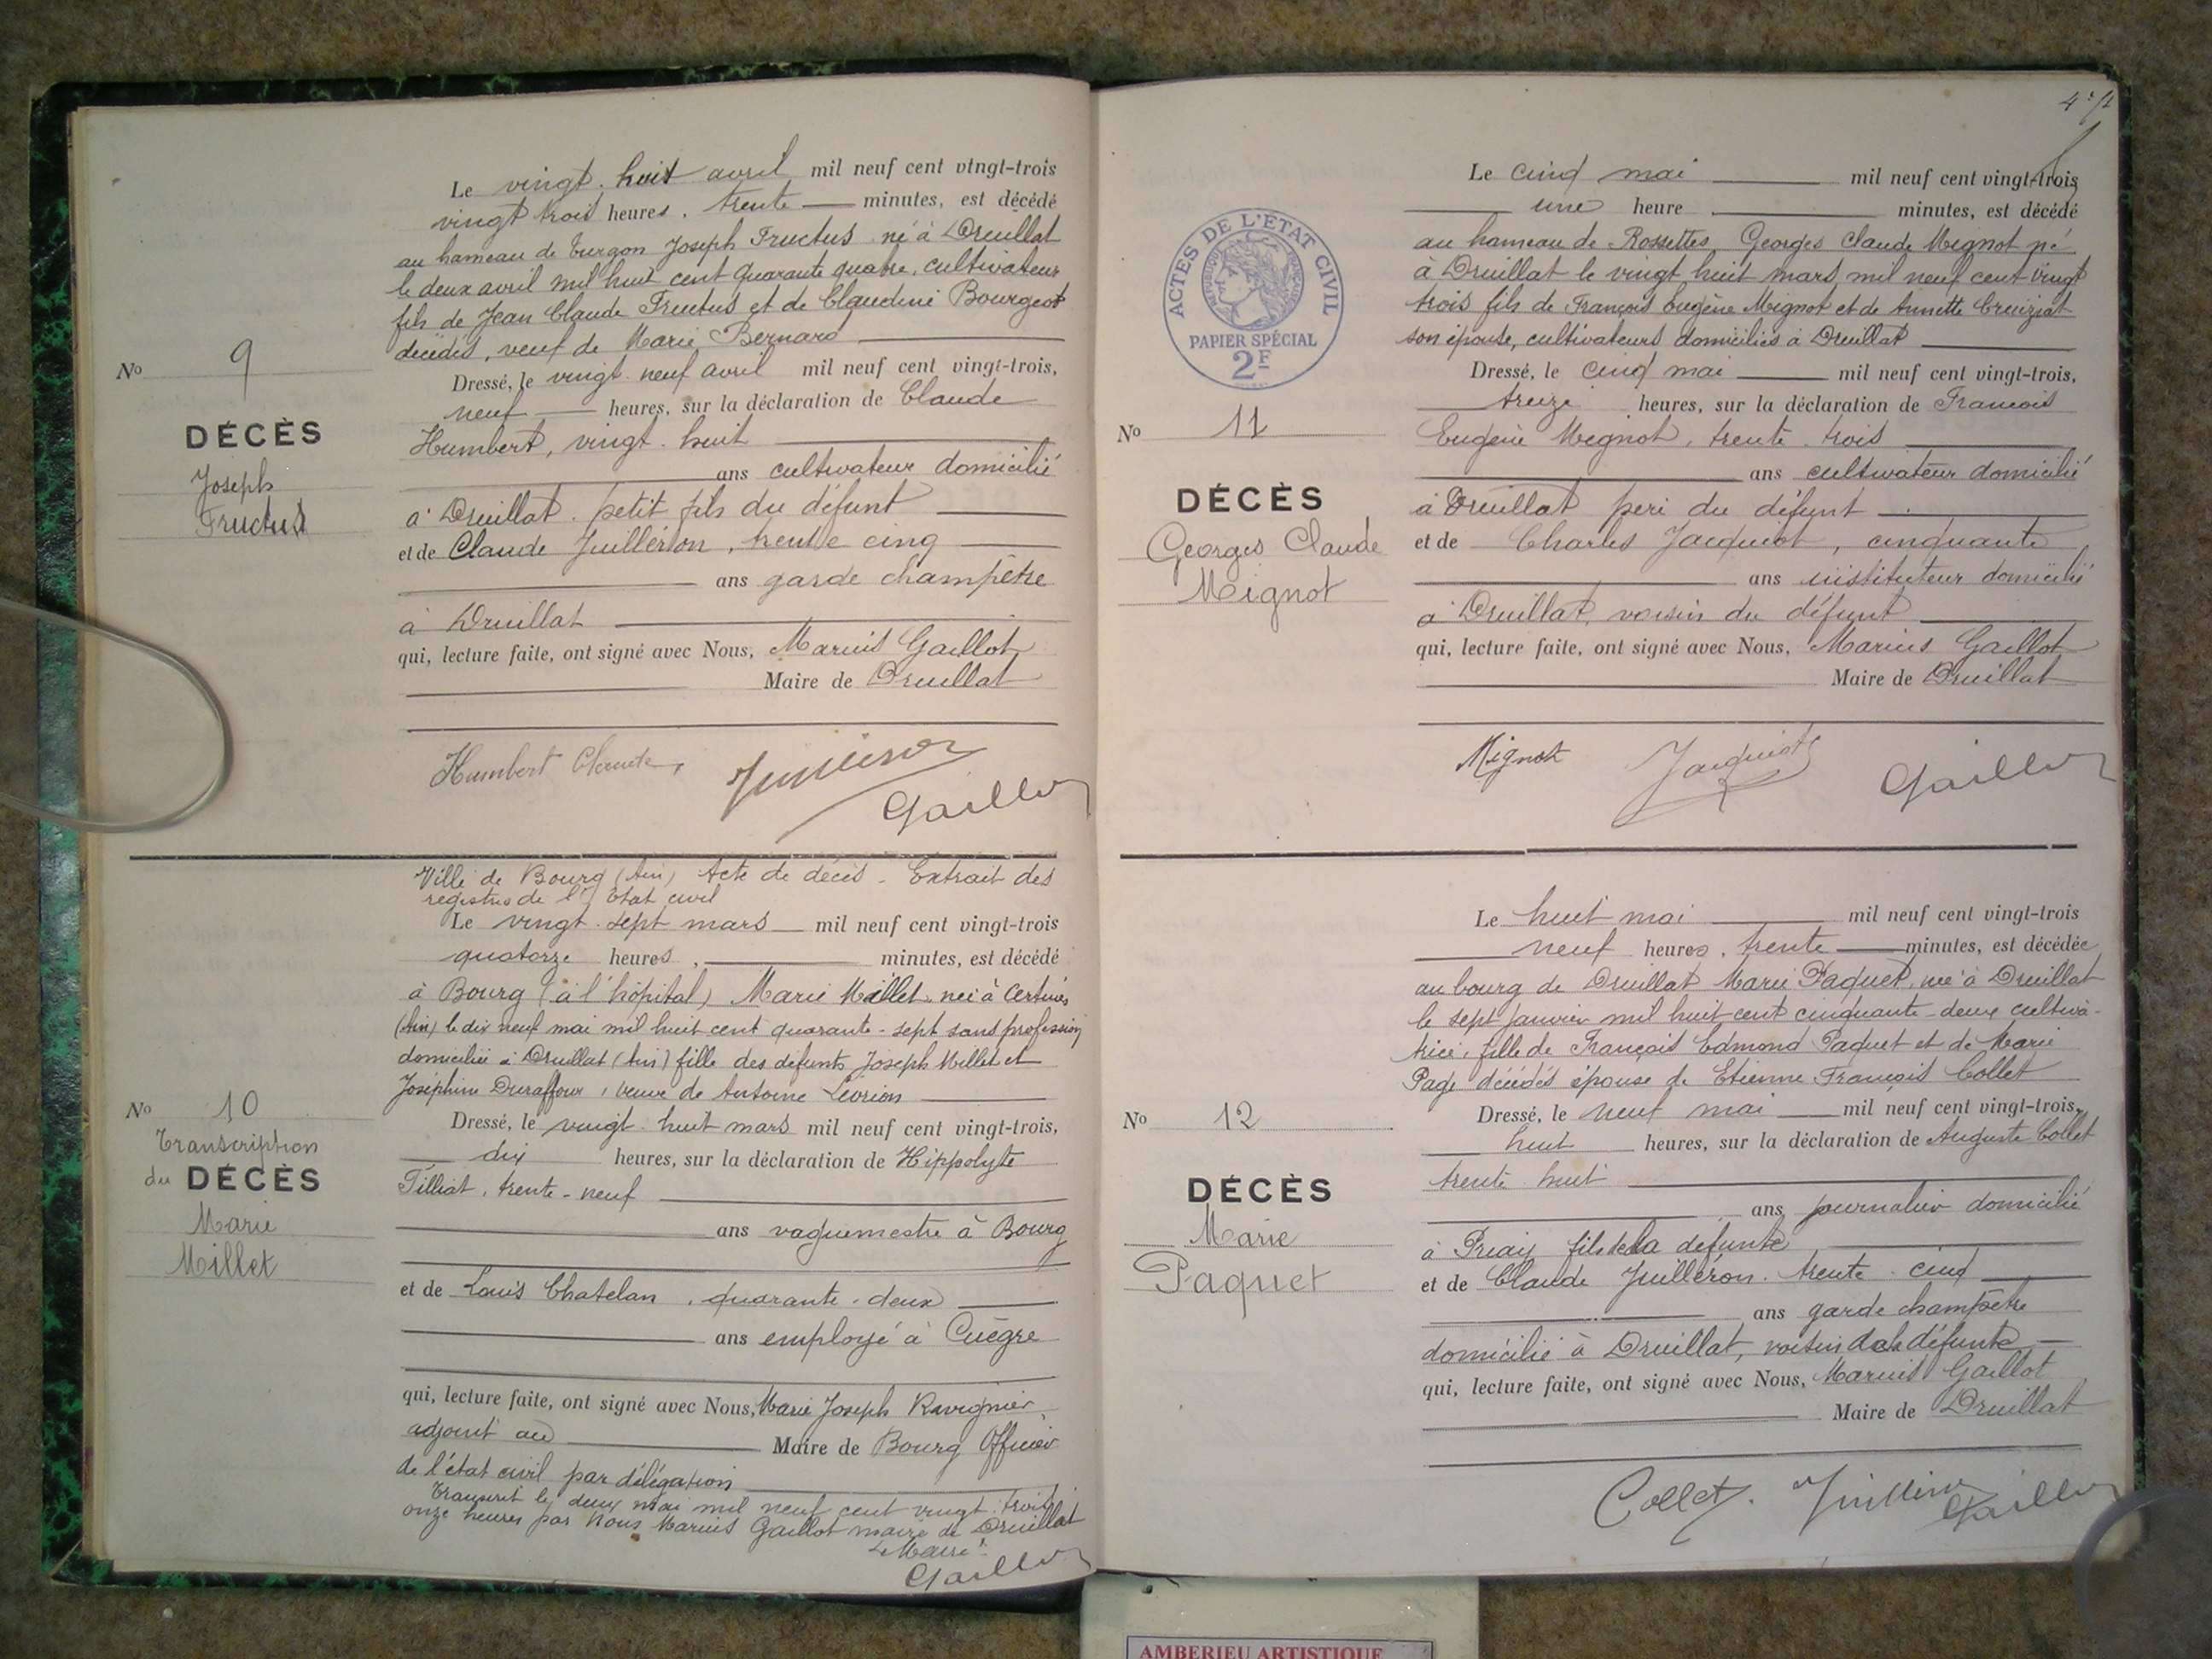 Le vingt-huit avril mil neuf cent vingt-trois
vingt trois heures, trente minutes, est décédé
au hameau de Turgon Joseph Fructus né à Druillat
le deux avril mil huit cent quarante quatre, cultivateur
fils de Jean Claude Fructus et de Claudine Bourgeot
décédés, veuf de Marie Bernard
Dressé, le vingt neuf avril mil neuf cent vingt-trois,
neuf heures, sur la déclaration de Claude
Humbert, vingt-huit
ans cultivateur domicilié
à Druillat. petit fils du défunt
et de Claude Juilléron, trente cinq
ans garde champêtre
à Druillat
qui, lecture faite, ont signé avec Nous, Marius Gaillot
Maire de Druillat
Humbert Claude
Juilleron
Gaillot
No 9
DÉCÈS
Joseph
Fructus
Ville de Bourg (Ain) Acte de décès - Extrait des
registres de l'Etat civil
Le vingt-sept mars mil neuf cent vingt-trois
quatorze heures, minutes, est décédé
à Bourg (à l'hôpital) Marie Millet née à Certines
(Ain) le dix neuf mai mil huit cent quarante-sept sans profession
domiciliée à Druillat (Ain) fille des défunts Joseph Millet et
Joséphine Duraffour, veuve de Antoine Léorion
Dressé, le vingt-huit mars mil neuf cent vingt-trois,
dix heures, sur la déclaration de Hippolyte
Tilliat, trente-neuf
ans vaguemestre à Bourg
et de Louis Chatelan, quarante-deux
ans employé à Cuègre
qui, lecture faite, ont signé avec Nous, Marie Joseph Ravignier,
adjoint au Maire de Bourg Officier
de l'état civil par délégation
Transcrit le deux mai mil neuf cent vingt trois
onze heures par Nous Marius Gaillot maire de Druillat
Le Maire
Gaillot
No 10
Transcription
du DÉCÈS
Marie
Millet
Le cinq mai mil neuf cent vingt-trois
une heure minutes, est décédé
au hameau de Rossettes, Georges Claude Mignot né
à Druillat le vingt huit mars mil neuf cent vingt
trois fils de François Eugène Mignot et de Annette Creuziat
son épouse, cultivateurs domiciliés à Druillat
Dressé, le cinq mai mil neuf cent vingt-trois,
treize heures, sur la déclaration de François
Eugène Mignot, trente-trois
ans cultivateur domicilié
à Druillat père du défunt
et de Charles Jacquiot, cinquante
ans instituteur domicilié
à Druillat, voisin du défunt
qui, lecture faite, ont signé avec Nous, Marius Gaillot
Maire de Druillat
Mignot
Jacquiot
Gaillot
ACTES DE L'ETAT CIVIL
REPUBLIQUE FRANÇAISE
PAPIER SPÉCIAL
2F
No 11
DÉCÈS
Georges Claude
Mignot
Le huit mai mil neuf cent vingt-trois
neuf heures, trente minutes, est décédée
au bourg de Druillat Marie Paquet, née à Druillat
le sept janvier mil huit cent cinquante-deux cultiva-
trice, fille de François Edmond Paquet et de Marie
Page décédés épouse de Etienne François Collet
Dressé, le neuf mai mil neuf cent vingt-trois,
huit heures, sur la déclaration de Auguste Collet
trente huit
ans, journalier domicilié
à Priay fils de la défunte
et de Claude Juilléron. trente-cinq
ans garde champêtre
domicilié à Druillat, voisin de la défunte
qui, lecture faite, ont signé avec Nous, Marius Gaillot
Maire de Druillat
Collet
Juilleron
Gaillot
No 12
DÉCÈS
Marie
Paquet
AMBERIEU ARTISTIQUE